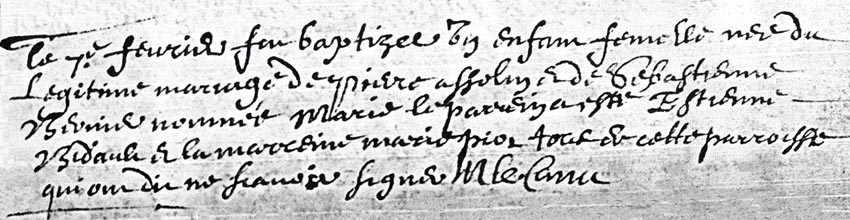 Le 7e feurier fut baptizee Un enfant femelle nee du
Legitime mariage de pierre asselin & de Sebastienne
Bernier nommée Marie le parrein a esté Estienne
Bidault & la marreine marie pior tous de cette parroisse
qui ont dit ne scauoir signer M le Camu